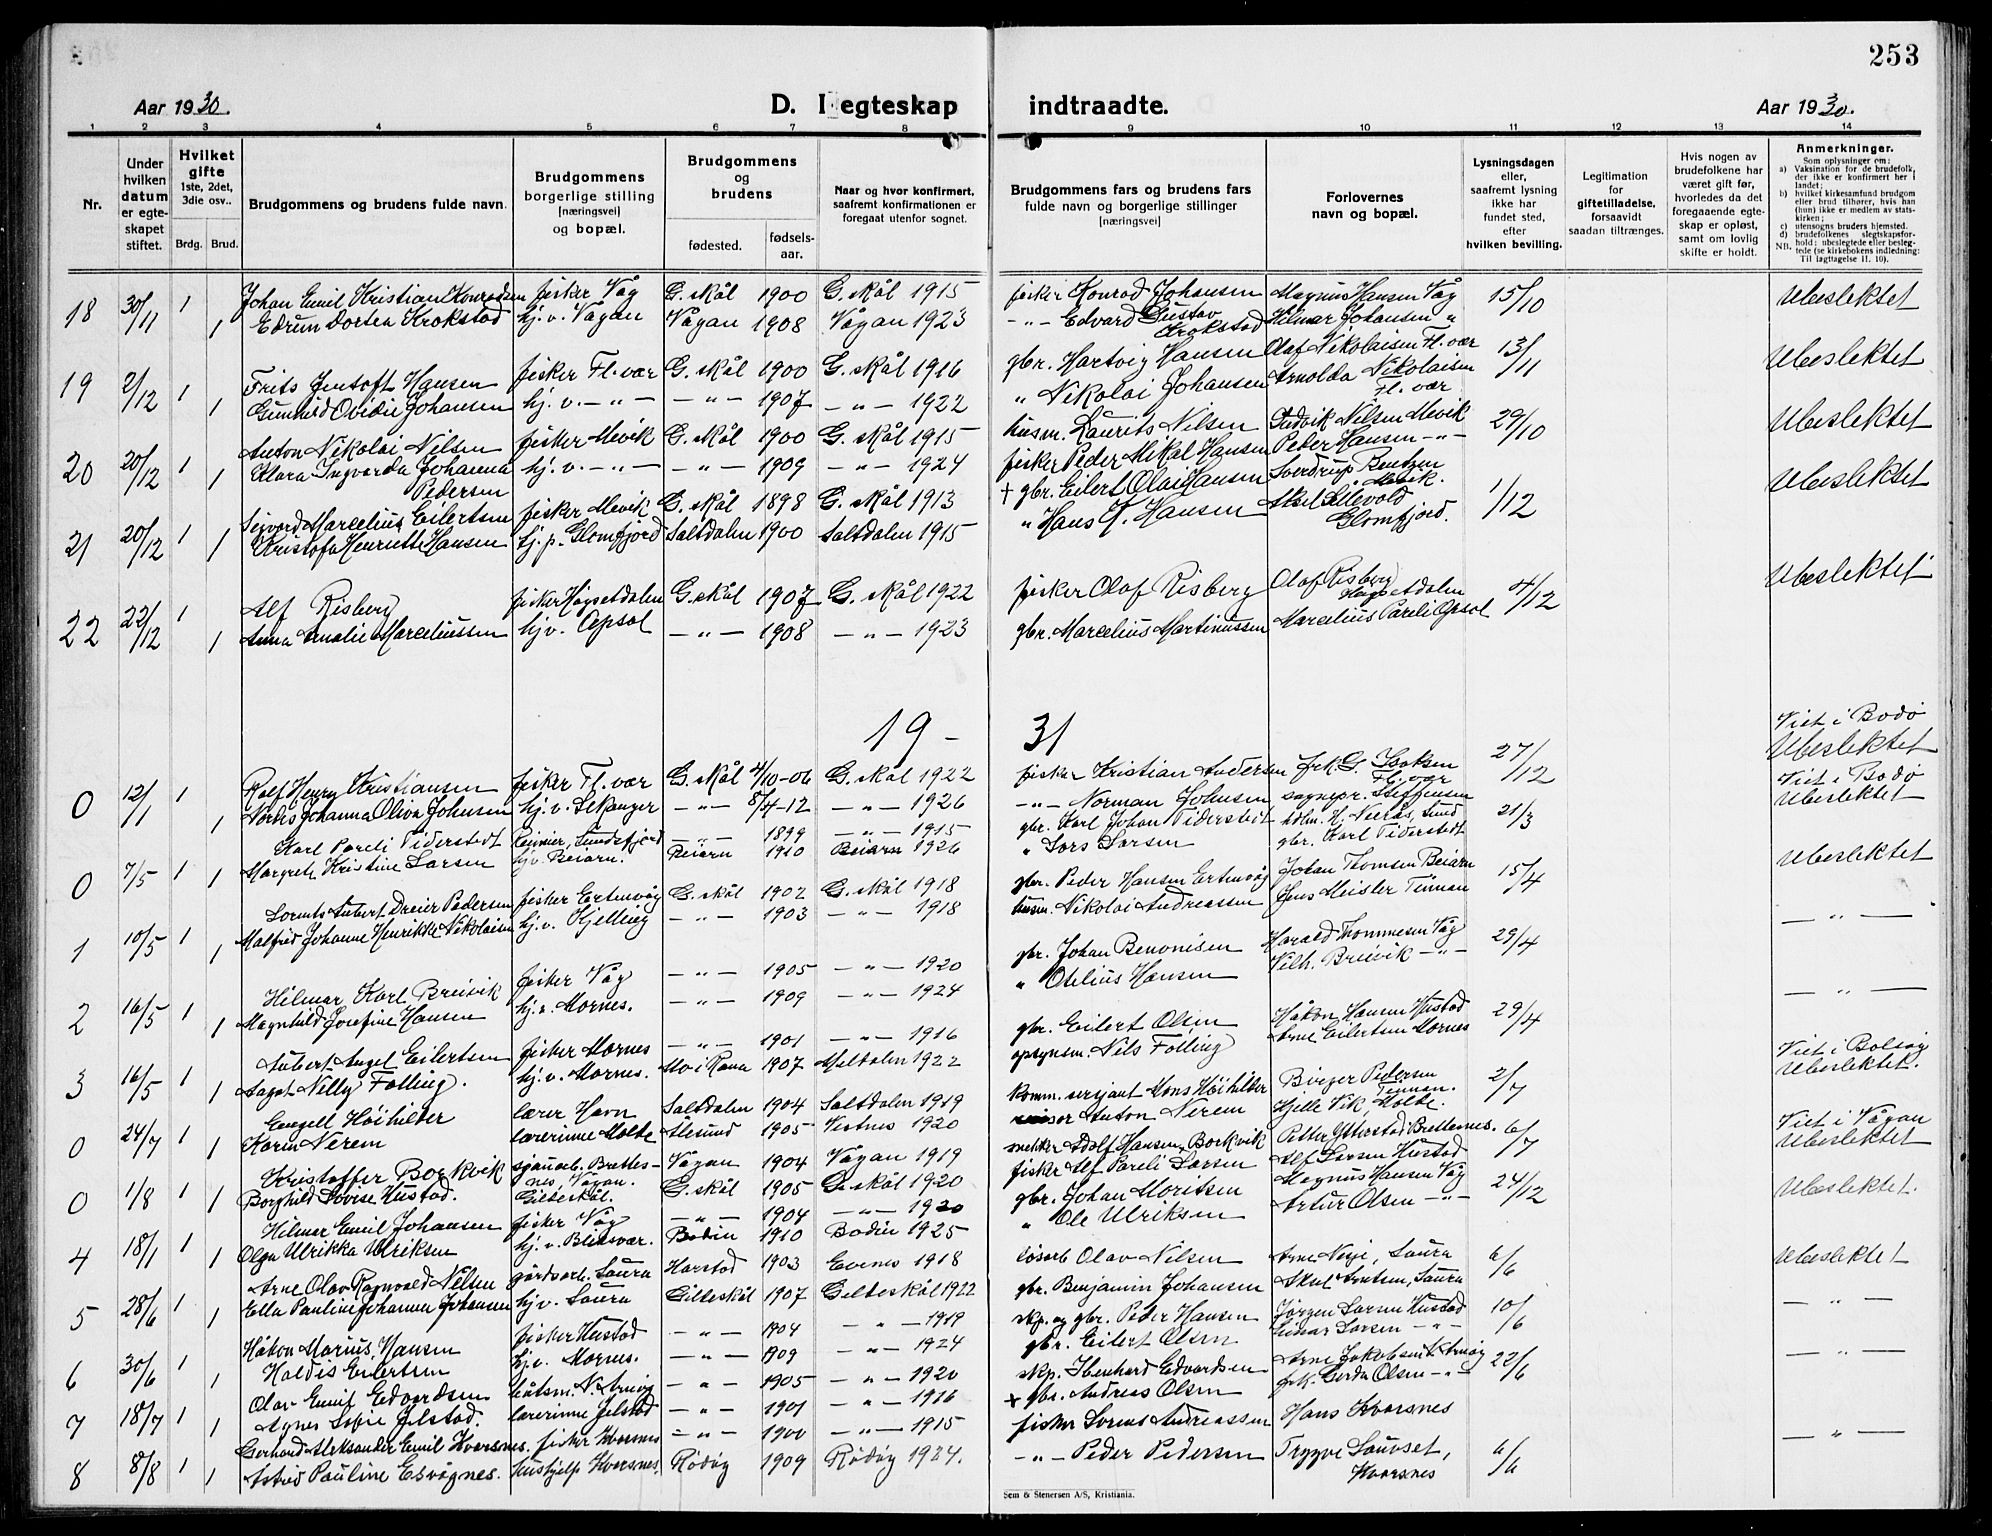 253
Aar 1930.
D. I egteskap indtraadte.
Aar 1930.
1 2 3 4 5 6 7 8 9 10 11 12 13 14
Nr.
Under hvilken datum er egteskapet stiftet.
Hvilket gifte 1ste, 2det, 3die osv..
Brdg. Brud.
Brudgommens og brudens fulde navn.
Brudgommens borgerlige stilling [næringsvei] og bopæl.
Brudgommens og brudens
fødested.
fødselsaar.
Naar og hvor konfirmert, saafremt konfirmationen er foregaat utenfor sognet.
Brudgommens fars og brudens fars fulde navn og borgerlige stillinger [næringsvei]
Forlovernes navn og bopæl.
Lysningsdagen eller, saafremt lysning ikke har fundet sted, efter hvilken bevilling.
Legitimation for giftetilladelse, forsaavidt saadan tiltrænges.
Hvis nogen av brudefolkene har været gift før, hvorledes da det foregaaende egteskap er opløst, samt om lovlig skifte er holdt.
Anmerkninger.
Som oplysninger om:
a) Vaksination for de brudefolk, der ikke er konfirmert her i landet;
b) hvilket kirkesamfund brudgom eller brud tilhører, hvis han (hun) ikke er medlem av statskirken;
c) utensogns bruders hjemsted.
d) brudefolkenes slegtskapsforhold; ubeslegtede eller beslegtede (se kirkebokens indledning:
NB. Til iagttagelse II. 10).
18 30/11 1 Johan Emil Kristian Konradsen fisker Våg G. skål 1900 G. skål 1915 fisker Konrad Johansen Magnus Hansen Våg 15/10 Ubeslektet
1 Edrun Dortea Krokstad hj. v. Vågan Vågan 1908 Vågan 1923 -"- Edvard Gustav Krokstad Hilmar Johansen "
19 2/12 1 Frits Jentoft Hansen fisker Fl. vær G. skål 1900 G. skål 1916 gbr. Hartvig Hansen Olaf Nikolaisen Fl. vær 13/11 Ubeslektet
1 Gunhild Ovidie Johansen hj. v. -"- -"- 1907 -"- 1922 " Nikolai Johansen Arnolda Nikolaisen Fl. vær
20 20/12 1 Anton Nikolai Nilsen fisker Mevik G. skål 1900 G. skål 1915 husm. Laurits Nilsen Ludvik Nilsen Mevik 29/10 Ubeslektet
1 Klara Ingvarda Johanna Pedersen hj. v. -"- -"- 1909 -"- 1924 fisker Peder Mikal Hansen Peder Hansen -"-
21 20/12 1 Sigvard Marcelius Eilertsen fisker Mevik G. skål 1898 G. skål 1913 + gbr. Eilert Olai Hansen Sverdrup Bentzen Mevik. 1/12 Ubeslektet
1 Kristofa Henriette Hansen hj. p. Glomfjord Saltdalen 1900 Saltdalen 1915 " Hans K. Hansen Aksel Lillevold Glomfjord.
22 22/12 1 Alf Risberg fisker Høgsetdalen G. skål 1907 G. skål 1922 fisker Olaf Risberg Olaf Risberg Høgsetdalen 4/12 Ubeslektet
1 Anna Amalie Marceliussen hj. v. Opsal -"- 1908 -"- 1923 gbr. Marcelius Martinussen Marcelius Pareli Opsal
19 - 31
0 12/1 1 Rolf Henry Kristiansen fisker Fl. vær G. skål 4/10-06 G. skål 1922 fisker Kristian Andersen frk. G. Isaksen Fl. vær 27/12 Viet i Bodø Ubeslektet
1 Nordis Johanna Oliva Johnsen hj. v. -"- 8/4-12 -"- 1926 -"- Norman Johnsen sognepr. Steffensen
0 7/5 1 Karl Pareli Tiderstedt 1899 -"- 1915 gbr. Karl Johan Tiderstedt 21/3 Viet i Bodø Ubeslektet
1 Margrete Kristine Larsen hj. v. Beiarn. Beiarn 1910 Beiarn 1926 " Lars Larsen gbr. Karl Tiderstedt
1 10/5 1 Lorents Hubert Dreier Pedersen fisker Ertenvåg G. skål 1902 G. skål 1918 gbr. Peder Hansen Ertenvåg Johan Thomsen Beiarn 15/4 Ubeslektet
1 Malfrid Johanne Henrikke Nikolaisen hj. v. Kjelling -"- 1903 -"- 1918 husm. Nikolai Andreassen Jens Meisler Finnan
2 16/5 1 Hilmar Karl Breivik fisker Våg -"- 1905 -"- 1920 gbr. Johan Benonisen Harald Thommesen Våg 29/4 -"-
1 Magnhild Josefine Hansen hj. v. Mornes. -"- 1909 -"- 1924 " Otelius Hansen Vilh. Breivik -"-
3 16/5 1 Hubert Angel Eilertsen fisker Mornes -"- 1901 -"- 1916 gbr. Eilert Olsen Håkon Hansen Hustad 29/4 -"-
1 Aagot Nelly Følling. hj. v. Mornes. Mo i Rana 1907 Meldalen 1922 opsynsm. Nils Følling Arne Eilertsen Mornes
0 24/7 1 Engell Høihilder lærer Havn Saltdalen 1904 Saltdalen 1919 komm. sersjant Mons Høihilder Birger Pedersen Finnan. 2/7 Viet i Bolsøy Ubeslektet.
1 Karin Nerem lærerinne Molde Ålesund 1905 Vestnes 1920 Anton Nerem Hjelle Vik, Molde.
0 1/8 1 Kristoffer Borkvik sjauarb. Brettesnes, Vågan. Vågan 1904 Vågan 1919 snekker Adolf Hansen Borkvik Petter Ytterstad Brettesnes. 6/7 Viet i Vågan Ubeslektet
1 Borghild Lovise Hustad. Gildeskål. G. skål 1905 G. skål 1920 fisker Alf Pareli Larsen Alf Larsen Hustad
4 18/1 1 Hilmar Emil Johansen fisker Våg -"- 1904 -"- 1920 gbr. Johan Moritsen Magnus Hansen Våg 24/12 Ubeslektet.
1 Olga Ulrikka Ulriksen hj. v. Bliksvær. Bodin 1910 Bodin 1925 " Ole Ulriksen Artur Olsen -"-
5 28/6 1 Arne Olav Ragnvald Nilsen gårdsarb. Saura Harstad 1903 Evenes 1918 løsarb Olav Nilsen Arne Neje, Saura 6/6 Ubeslektet
1 Ella Pauline Johanna Johansen hj. v. Saura Gildeskål 1907 Gildeskål 1922 gbr. Benjamin Johansen Skul Arntsen, Saura
6 30/6 1 Håkon Marius Hansen fisker Hustad -"- 1904 -"- 1919 skp. og gbr. Peder Hansen Jørgen Larsen Hustad 10/6 -"-
1 Haldis Eilertsen hj. v. Mornes. -"- 1909 -"- 1924 gbr. Eilert Olsen Einar Larsen -"-
7 18/7 1 Olav Emil Edvardsen båtsm. N. Arnøy -"- 1905 -"- 1920 skp. Ibenhard Edvardsen Arne Jakobsen N. Arnøy 22/6 -"-
1 Agnes Sofie Jelstad. lærerinne Jelstad -"- 1901 -"- 1916 + gbr. Andreas Olsen frk. Gerda Olsen -"-
8 8/8 1 Gerhard Aleksander Emil Kvarsnes. fisker Kvarsnes -"- 1900 -"- 1915 fisker Lorens Andreassen Hans Kvarsnes 6/6 -"-
1 Astrid Pauline Esvågnes. hushjelp Kvarsnes. Rødøy 1909 Rødøy 1924. -"- Peder Pedersen Trygve Sauvset, Kvarsnes
Sem & Stenersen A/S, Kristiania.